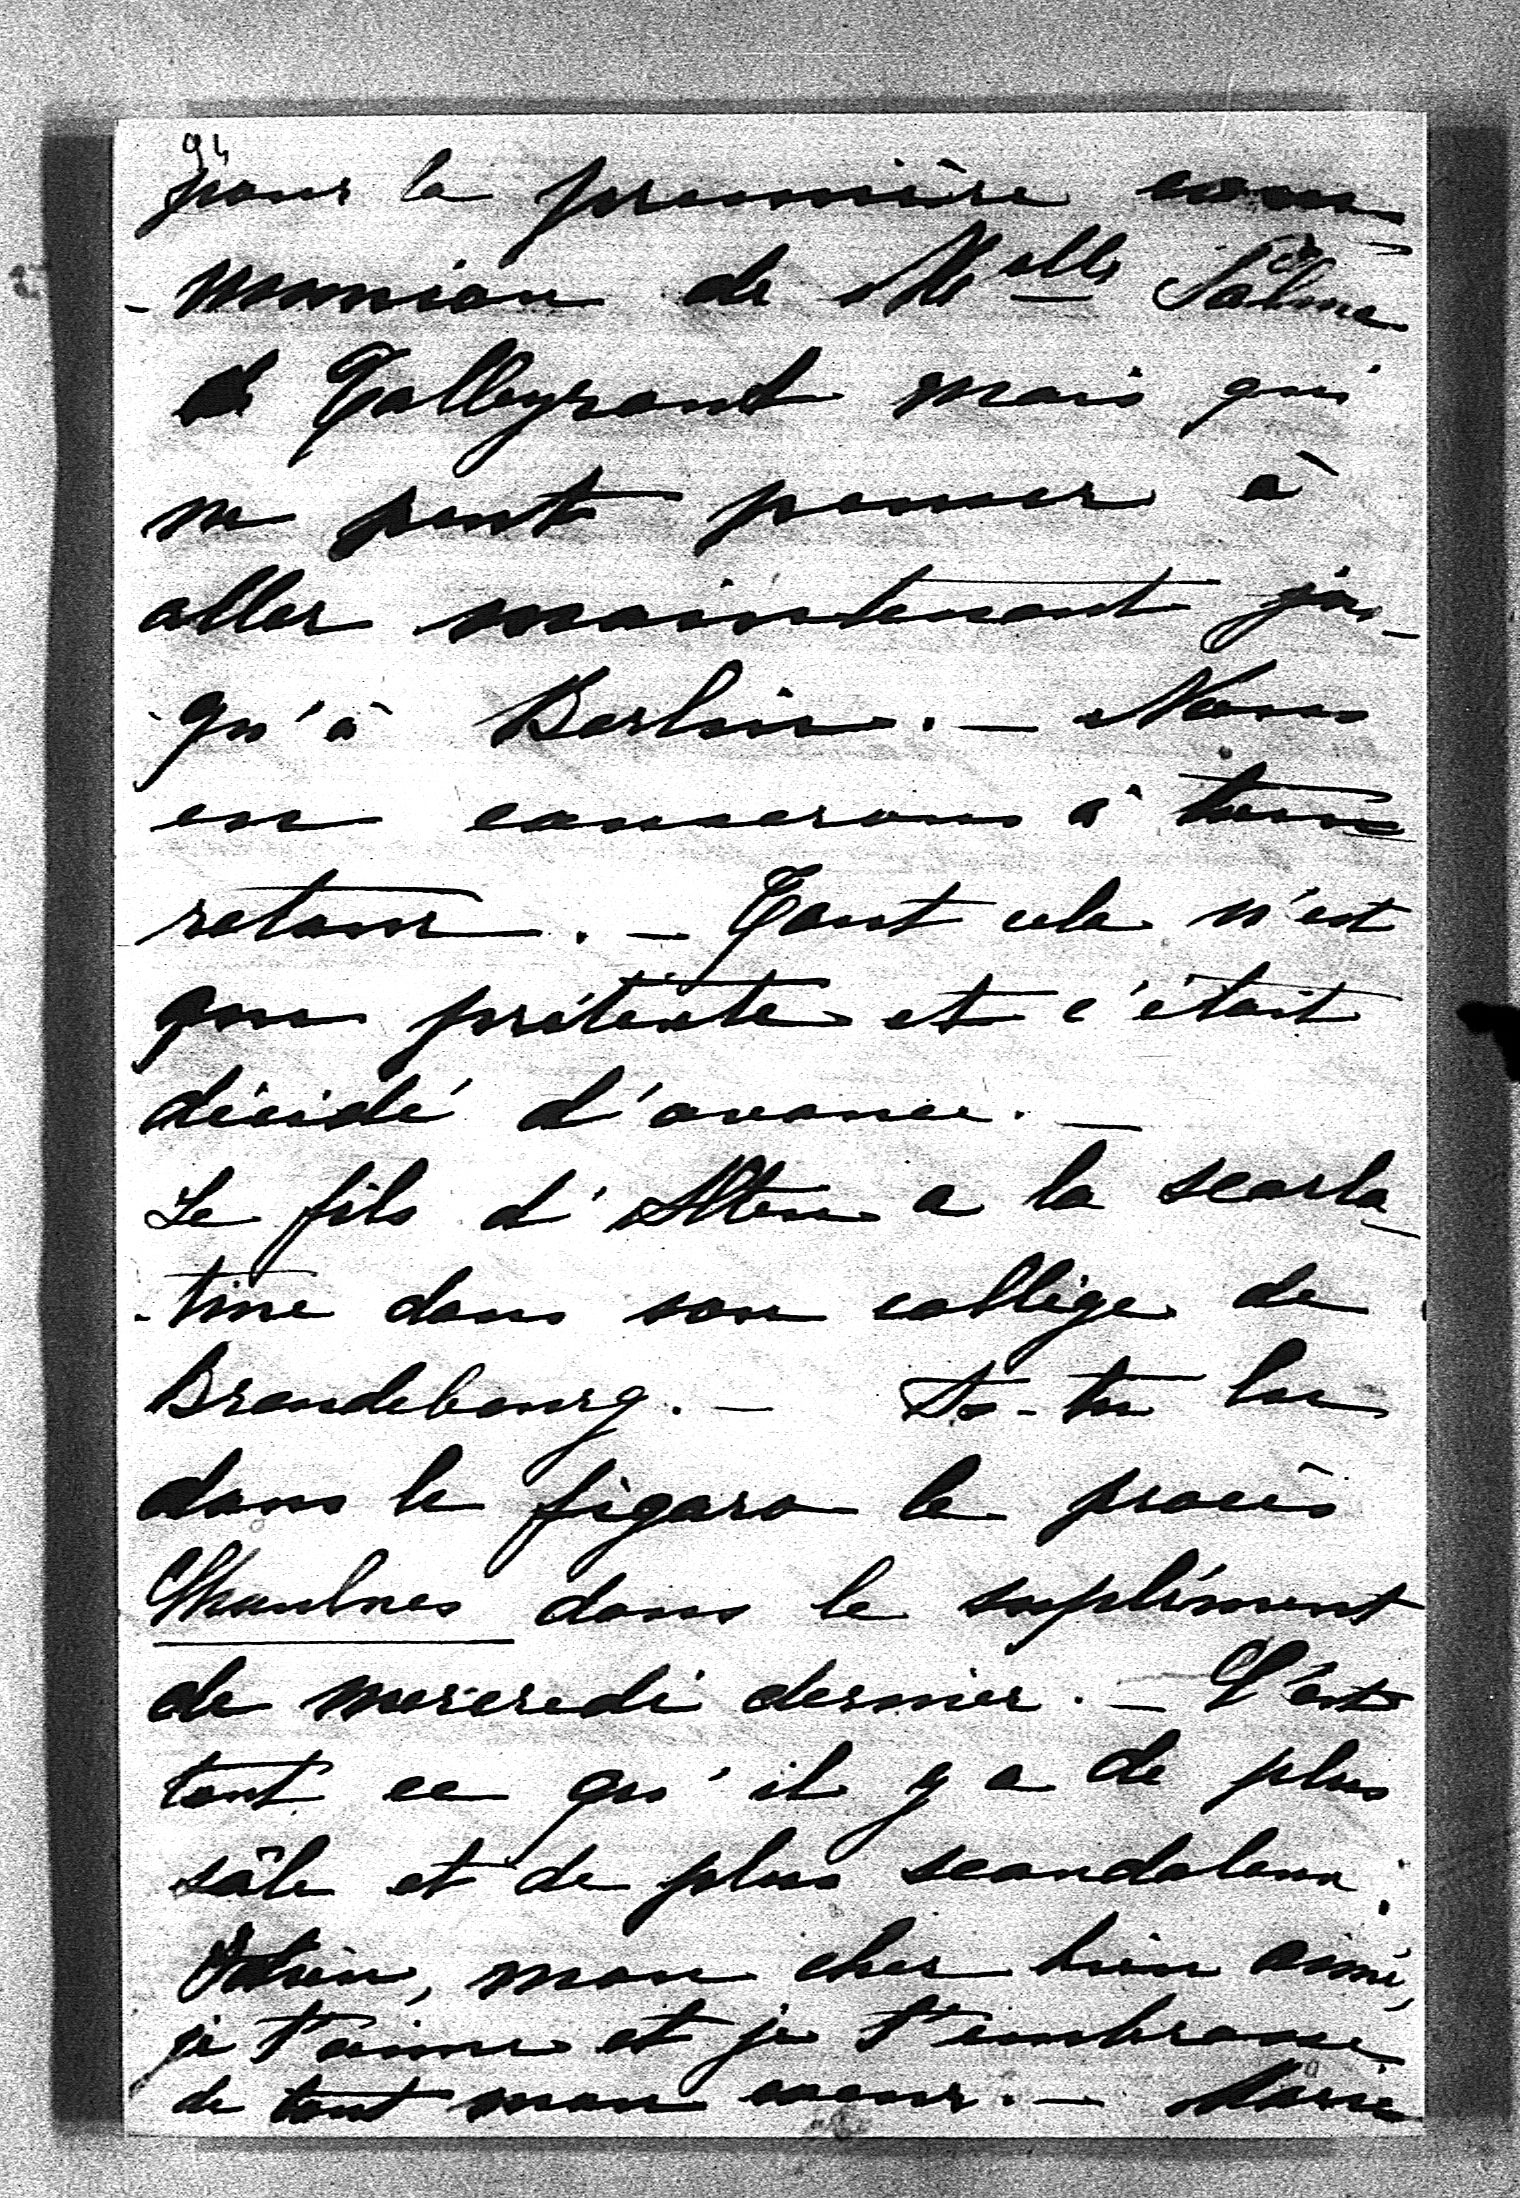 94
pour la première com
-munion de M elle
de Talleyrand mais qui
ne peut penser à
aller maintenant jus-
qu'à Berlin. — Nous
en causerons à ton
retour. — Tout cela n'est
que prétexte et c'était
décidé d'avance. —
Le fils d'Alten a la scarla-
-tine dans son collège de
Brandebourg. — As-tu lu
dans le figaro le procès
Chaulnes dans le suplément
de mercredi dernier. — C'est
tout ce qu'il y a de plus
sâle et de plus scandaleux.
Adieu, mon cher bien aimé,
je t'aime et je t'embrasse
de tout mon coeur. — Marie